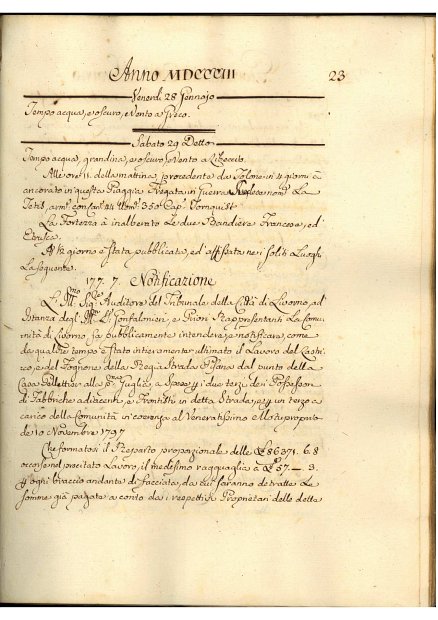 Anno MDCCCIII 23
Venerdi 28 Gennajo
Tempo acqua, e oscuro, e Vento a Greco.
Sabato 29 Detto
Tempo acqua, grandina, e oscuro, e Vento a Libeccio
Alle ore 11. della mattina, procedente da Tolone in 4 giorni è
ancorato in questa Piaggia Fregata in Guerra nom.ta La
Tetis, arm.ta con Can.i 44 Uom.i 350 Cap.n Tornquist
La Fortezza à inalberato Le due Bandiere Francese, ed
Etrusca
A ½ giorno è stata pubblicata, ed affissata nei soliti Luoghi
La seguente.
177. 7. Notificazione
L' Ill.mo Sig.re Auditore del Tribunale della Città di Livorno, ad
Istanza degl' Ill.mi SS.ri Gonfalonieri, e Priori Rappresentanti La Comu
nità di Livorno, fa pubblicamente intendere, e notificare, come
da qualche tempo è stato intieramente ultimato il Lavoro del Lastri
co, e del Fognone della Regia Strada Pisana dal punto della
Casa Pellettier alla Po: S. Giulia, a spese p. i due terzi dei Possessori
di Fabbriche adiacenti, e Frontisti in detta Strada, e p. un terzo a
carico della Comunità in coerenza al Veneratissimo Motuproprio
de 10 Novembre 1797
Che formatosi il Reparto proporzionale delle £ 86371. 6. 8
occorse nel precitato Lavoro, il medesimo ragguaglia a £ 57. — 3.
p. ogni braccio andante di facciata, da cui saranno detratte Le
somme già pagate a conto da i respettivi Proprietari delle dette